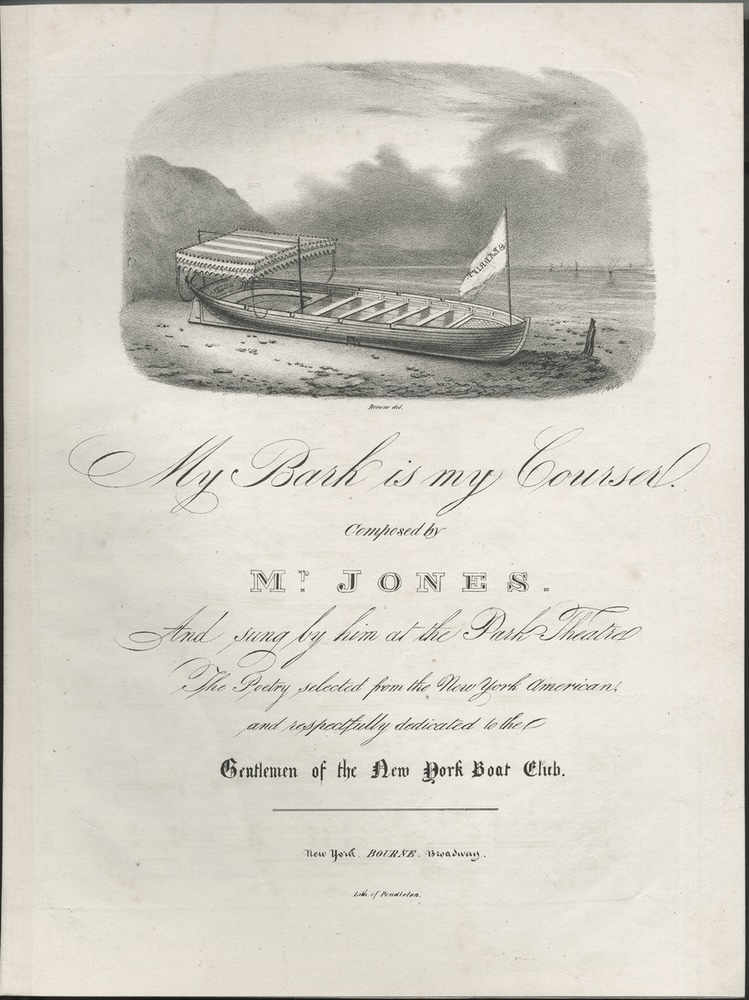 Browne del.
My Bark is my Courser.
Composed by
Mr. JONES.
And sung by him at the Park Theatre
The Poetry selected from the New York American,
and respectfully dedicated to the
Gentlemen of the New York Boat Club.
New York. BOURNE. Broadway.
Lith of Pendleton.